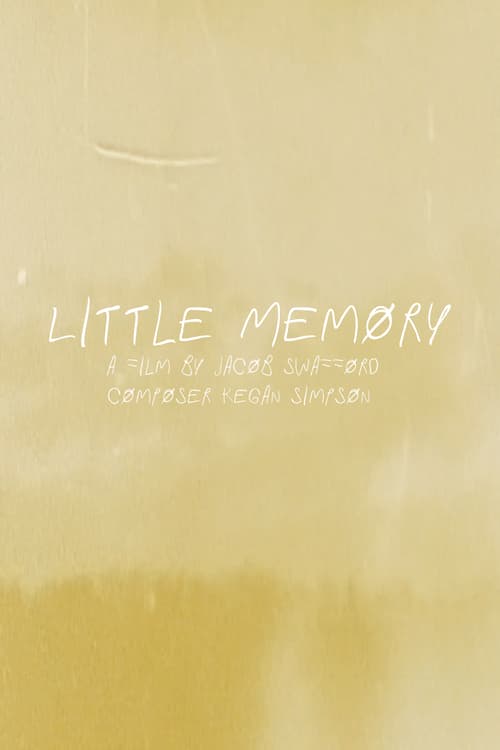 LITTLE MEMØRY
A FILM BY JACØB SWAFFØRD
CØMPØSER KEGAN SIMPSØN